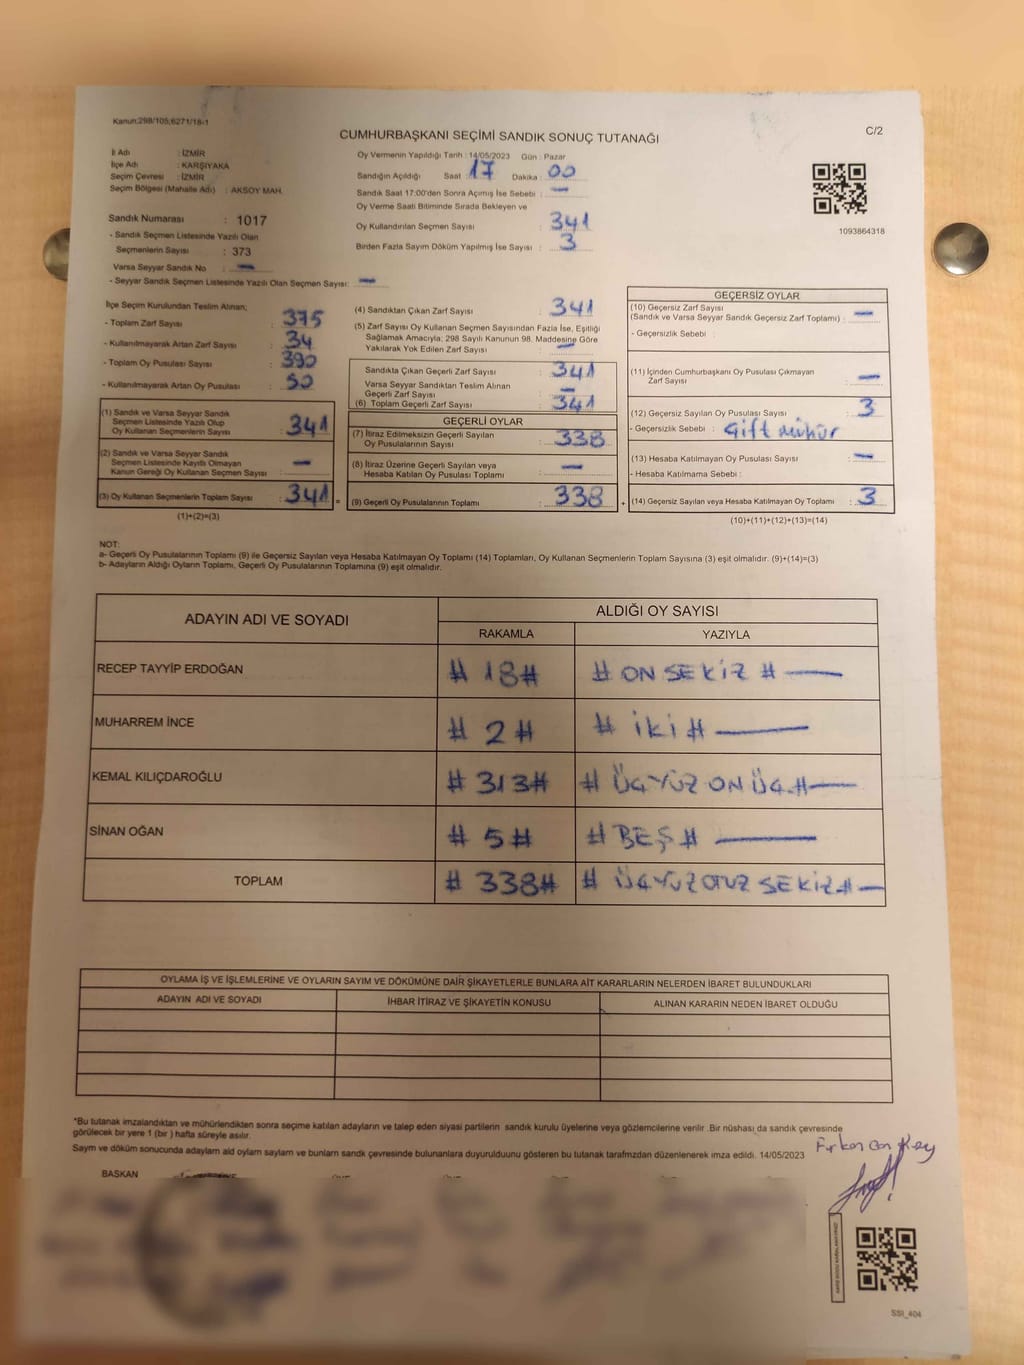 Kanun:298/105;6271/18-1
CUMHURBAŞKANI SEÇİMİ SANDIK SONUÇ TUTANAĞI
C/2
İl Adı : İZMİR
İlçe Adı : KARŞIYAKA
Seçim Çevresi : İZMİR
Seçim Bölgesi (Mahalle Adı) : AKSOY MAH.
Sandık Numarası : 1017
- Sandık Seçmen Listesinde Yazılı Olan
Seçmenlerin Sayısı : 373
Varsa Seyyar Sandık No : —
- Seyyar Sandık Seçmen Listesinde Yazılı Olan Seçmen Sayısı: —
Oy Vermenin Yapıldığı Tarih : 14/05/2023 Gün : Pazar
Sandığın Açıldığı Saat : 17 Dakika : 00
Sandık Saat 17:00'den Sonra Açımış İse Sebebi : —
Oy Verme Saati Bitiminde Sırada Bekleyen ve
Oy Kullandırılan Seçmen Sayısı : 341
Birden Fazla Sayım Döküm Yapılmış İse Sayısı : 3
1093864318
İlçe Seçim Kurulundan Teslim Alınan;
- Toplam Zarf Sayısı : 375
- Kullanılmayarak Artan Zarf Sayısı : 34
- Toplam Oy Pusulası Sayısı : 390
- Kullanılmayarak Artan Oy Pusulası : 50
(1) Sandık ve Varsa Seyyar Sandık
Seçmen Listesinde Yazılı Olup
Oy Kullanan Seçmenlerin Sayısı : 341
(2) Sandık ve Varsa Seyyar Sandık
Seçmen Listesinde Kayıtlı Olmayan
Kanun Gereği Oy Kullanan Seçmen Sayısı : —
(3) Oy Kullanan Seçmenlerin Toplam Sayısı : 341 =
(1)+(2)=(3)
(4) Sandıktan Çıkan Zarf Sayısı : 341
(5) Zarf Sayısı Oy Kullanan Seçmen Sayısından Fazla İse, Eşitliği
Sağlamak Amacıyla; 298 Sayılı Kanunun 98. Maddesine Göre
Yakılarak Yok Edilen Zarf Sayısı : —
Sandıkta Çıkan Geçerli Zarf Sayısı : 341
Varsa Seyyar Sandıktan Teslim Alınan
Geçerli Zarf Sayısı : —
(6) Toplam Geçerli Zarf Sayısı : 341
GEÇERLİ OYLAR
(7) İtiraz Edilmeksizin Geçerli Sayılan
Oy Pusulalarının Sayısı : 338
(8) İtiraz Üzerine Geçerli Sayılan veya
Hesaba Katılan Oy Pusulası Toplamı : —
(9) Geçerli Oy Pusulalarının Toplamı : 338 +
GEÇERSİZ OYLAR
(10) Geçersiz Zarf Sayısı
(Sandık ve Varsa Seyyar Sandık Geçersiz Zarf Toplamı) : —
- Geçersizlik Sebebi :
(11) İçinden Cumhurbaşkanı Oy Pusulası Çıkmayan
Zarf Sayısı : —
(12) Geçersiz Sayılan Oy Pusulası Sayısı : 3
- Geçersizlik Sebebi : Çift mühür
(13) Hesaba Katılmayan Oy Pusulası Sayısı : —
- Hesaba Katılmama Sebebi :
(14) Geçersiz Sayılan veya Hesaba Katılmayan Oy Toplamı : 3
(10)+(11)+(12)+(13)=(14)
NOT:
a- Geçerli Oy Pusulalarının Toplamı (9) ile Geçersiz Sayılan veya Hesaba Katılmayan Oy Toplamı (14) Toplamları, Oy Kullanan Seçmenlerin Toplam Sayısına (3) eşit olmalıdır. (9)+(14)=(3)
b- Adayların Aldığı Oyların Toplamı, Geçerli Oy Pusulalarının Toplamına (9) eşit olmalıdır.
ADAYIN ADI VE SOYADI
ALDIĞI OY SAYISI
RAKAMLA YAZIYLA
RECEP TAYYİP ERDOĞAN # 18# # ON SEKİZ # —
MUHARREM İNCE # 2 # # İKİ # —
KEMAL KILIÇDAROĞLU # 313# # ÜÇYÜZ ON ÜÇ # —
SİNAN OĞAN # 5 # # BEŞ # —
TOPLAM # 338# # ÜÇYÜZ OTUZ SEKİZ # —
OYLAMA İŞ VE İŞLEMLERİNE VE OYLARIN SAYIM VE DÖKÜMÜNE DAİR ŞİKAYETLERLE BUNLARA AİT KARARLARIN NELERDEN İBARET BULUNDUKLARI
ADAYIN ADI VE SOYADI İHBAR İTİRAZ VE ŞİKAYETİN KONUSU ALINAN KARARIN NEDEN İBARET OLDUĞU
*Bu tutanak imzalandıktan ve mühürlendikten sonra seçime katılan adayların ve talep eden siyasi partilerin sandık kurulu üyelerine veya gözlemcilerine verilir .Bir nüshası da sandık çevresinde
görülecek bir yere 1 (bir ) hafta süreyle asılır.
Sayım ve döküm sonucunda adayların ald oyların sayları ve bunların sandk çevresinde bulunanlara duyurulduunu gösteren bu tutanak tarafmzdan düzenlenerek imza edildi. 14/05/2023
BAŞKAN
SSI_404